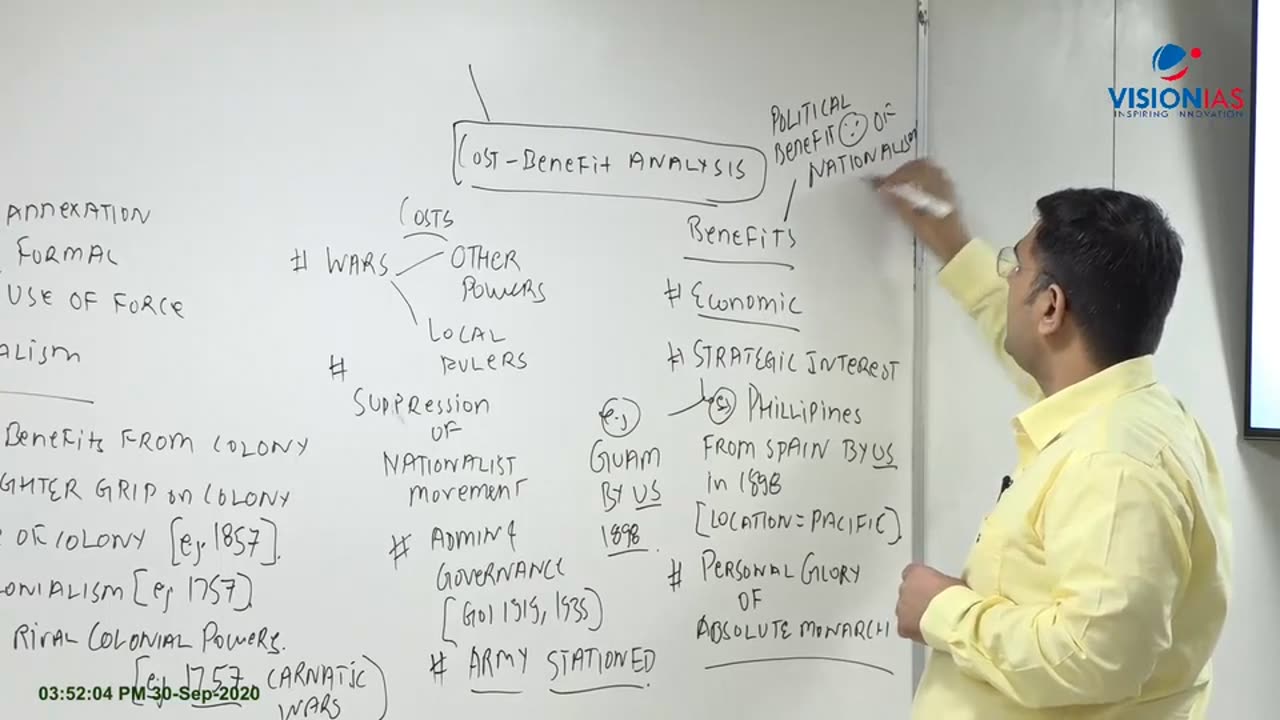 VISIONIAS
INSPIRING INNOVATION
COST-BENEFIT ANALYSIS
POLITICAL
BENEFIT OF
NATIONALISM
ANNEXATION
FORMAL
USE OF FORCE
ALISM
BENEFITS FROM COLONY
GHTER GRIP ON COLONY
OF COLONY [eg 1857].
ONIALISM [eg 1757].
RIVAL COLONIAL POWERS.
[eg 1757, CARNATIC
WARS]
COSTS
# WARS
OTHER
POWERS
LOCAL
RULERS
#
SUPPRESSION
OF
NATIONALIST
MOVEMENT
# ADMIN &
GOVERNANCE
[GOI 1919, 1935]
# ARMY STATIONED.
BENEFITS
# ECONOMIC
# STRATEGIC INTEREST
eg PHILLIPINES
FROM SPAIN BY US
in 1898
[LOCATION = PACIFIC].
e.g
GUAM
BY US
1898.
# PERSONAL GLORY
OF
ABSOLUTE MONARCH
03:52:04 PM 30-Sep-2020